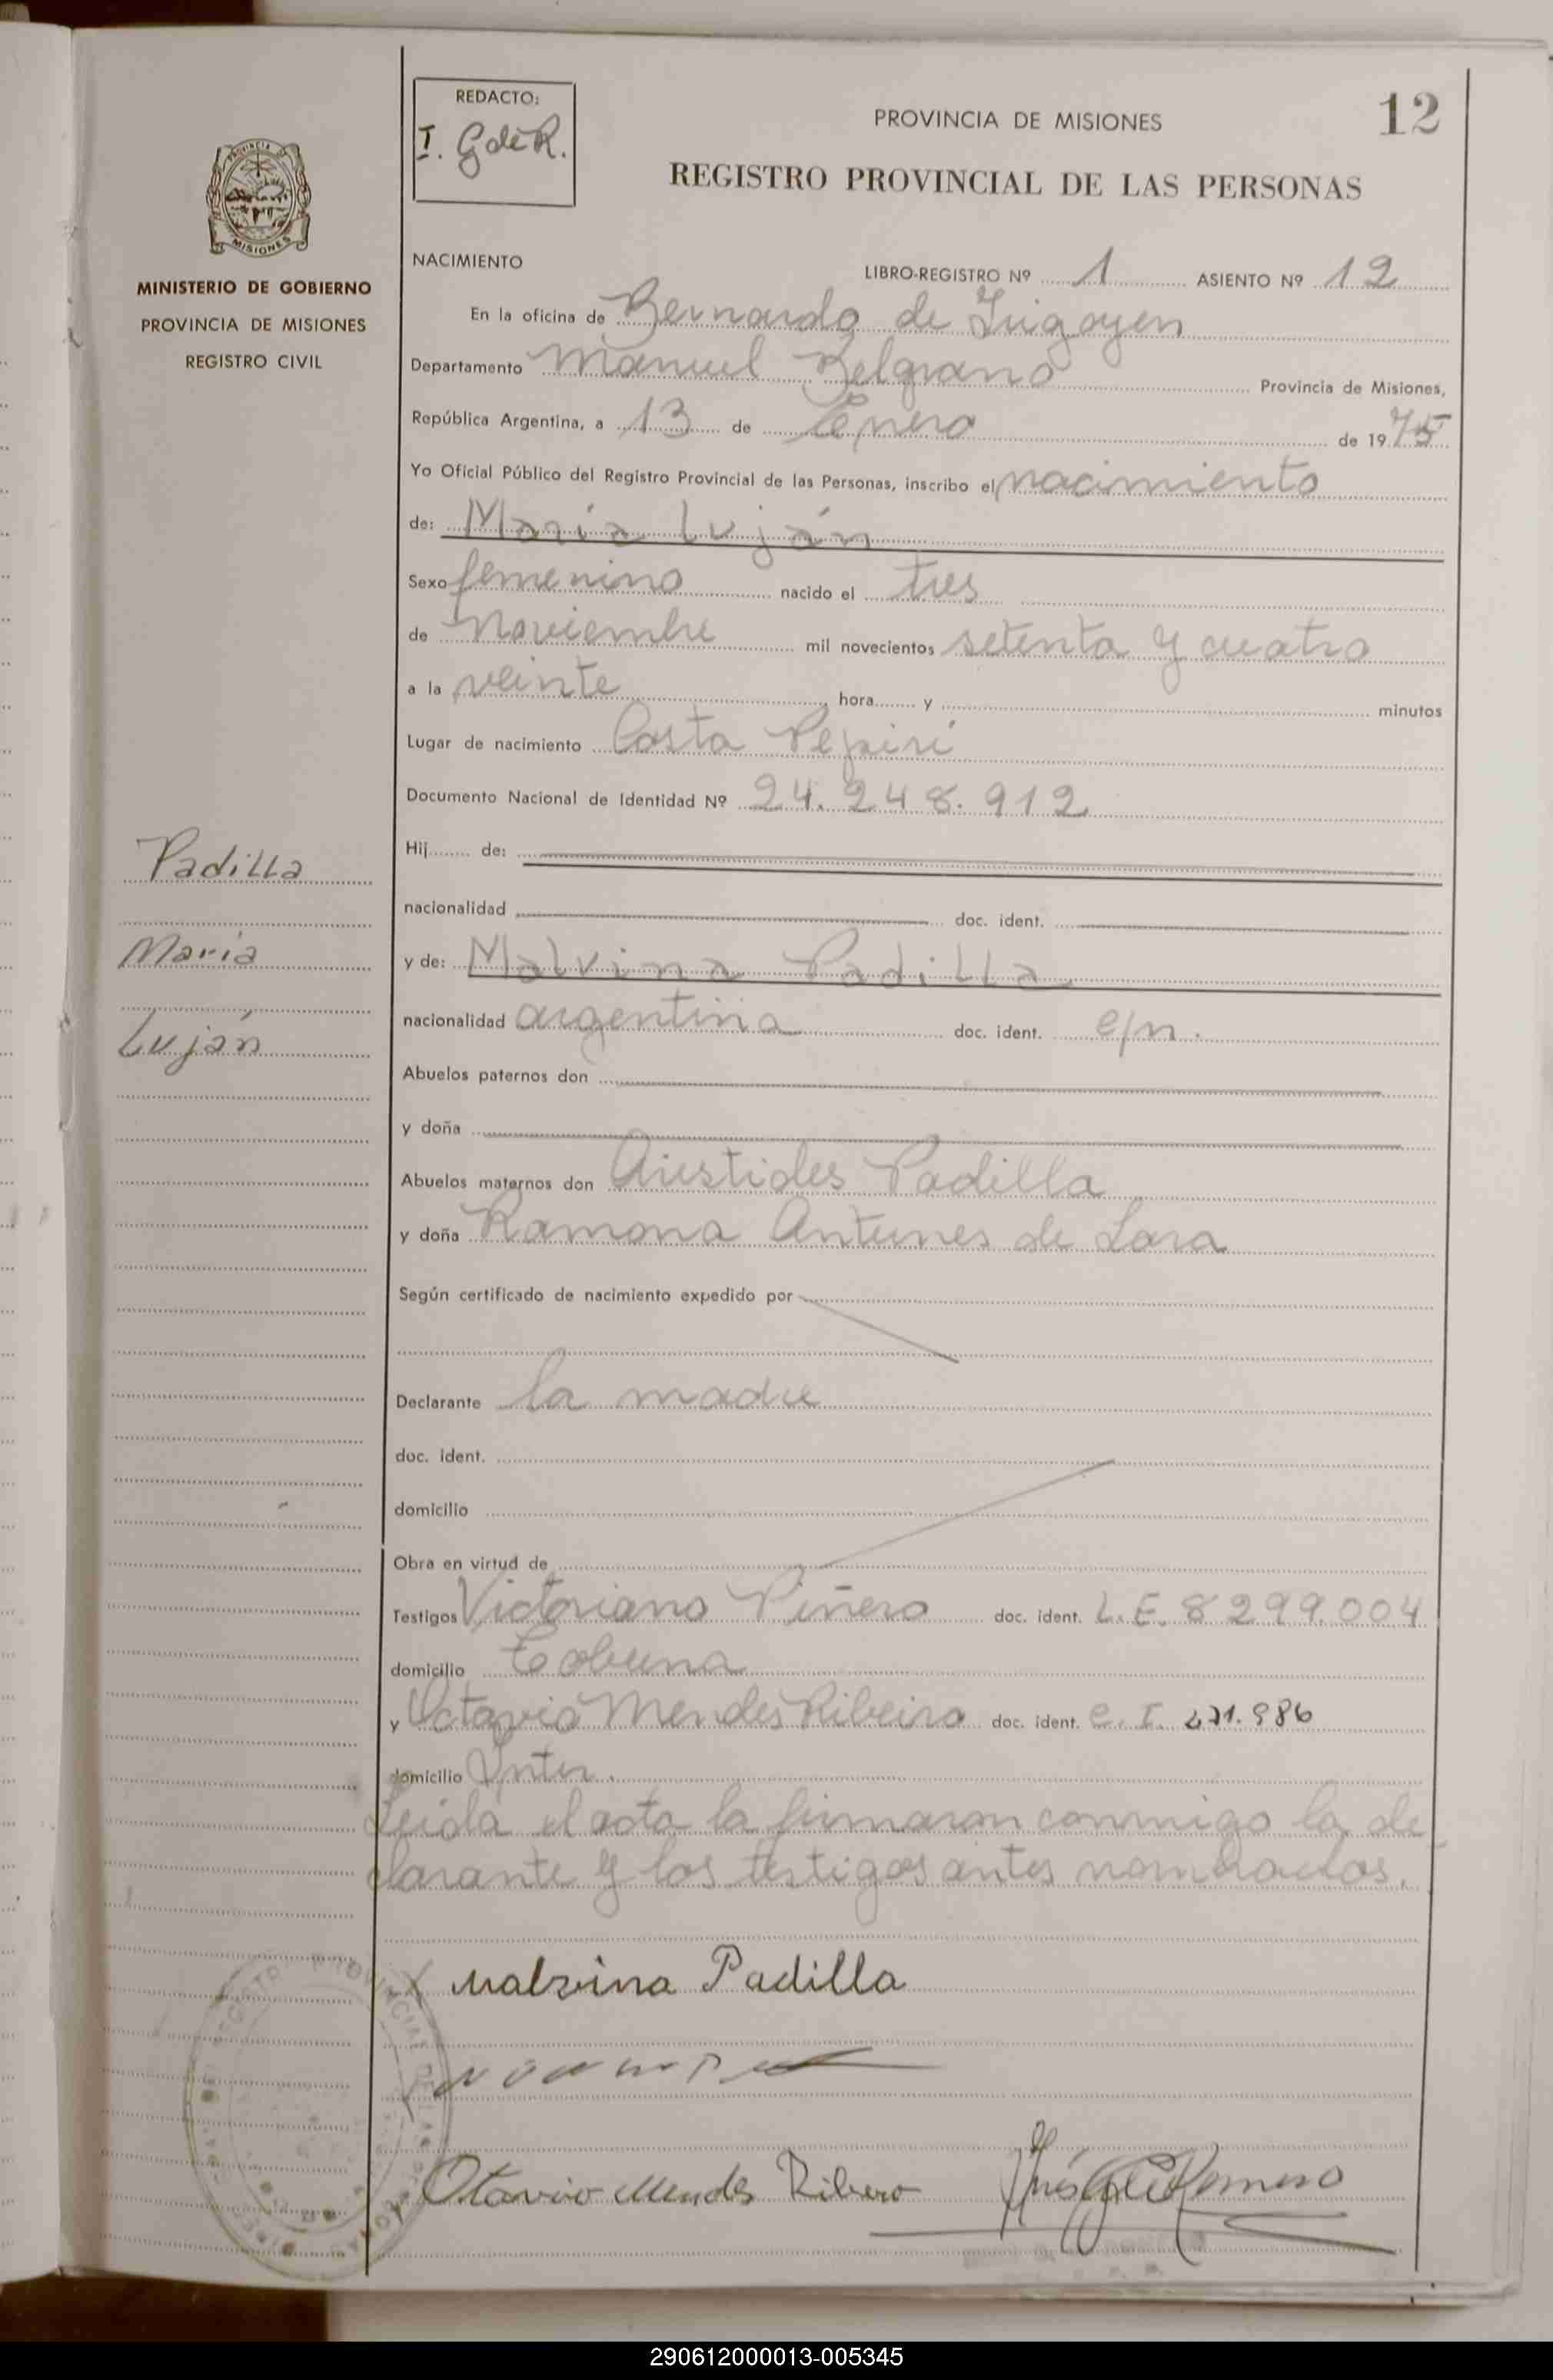 12
REDACTO:
I. G de R.
PROVINCIA DE MISIONES
REGISTRO PROVINCIAL DE LAS PERSONAS
PROVINCIA DE
MISIONES
MINISTERIO DE GOBIERNO
PROVINCIA DE MISIONES
REGISTRO CIVIL
NACIMIENTO
LIBRO-REGISTRO Nº 1 ASIENTO Nº 12
En la oficina de Bernardo de Irigoyen
Departamento Manuel Belgrano Provincia de Misiones,
República Argentina, a 13 de Enero de 1975
Yo Oficial Público del Registro Provincial de las Personas, inscribo el nacimiento
de: María Luján
Sexo femenino nacido el tres
de Noviembre mil novecientos setenta y cuatro
a la veinte hora y minutos
Lugar de nacimiento Costa Pepirí
Documento Nacional de Identidad Nº 24.248.912
Hij de:
nacionalidad doc. ident.
Padilla
María
Luján
y de: Malvina Padilla
nacionalidad argentina doc. ident. e/n.
Abuelos paternos don
y doña
Abuelos maternos don Aristides Padilla
y doña Ramona Antunes de Lara
Según certificado de nacimiento expedido por
Declarante la madre
doc. ident.
domicilio
Obra en virtud de
Testigos Victoriano Piñero doc. ident. L.E. 8299.004
domicilio Tobuna
y Octavio Mendes Ribeiro doc. ident. C. I.
domicilio
Leida el acta la firmaron conmigo la de
clarante y los testigos antes nombrados.
Malvina Padilla
Otavio Mendes Ribero
290612000013-005345